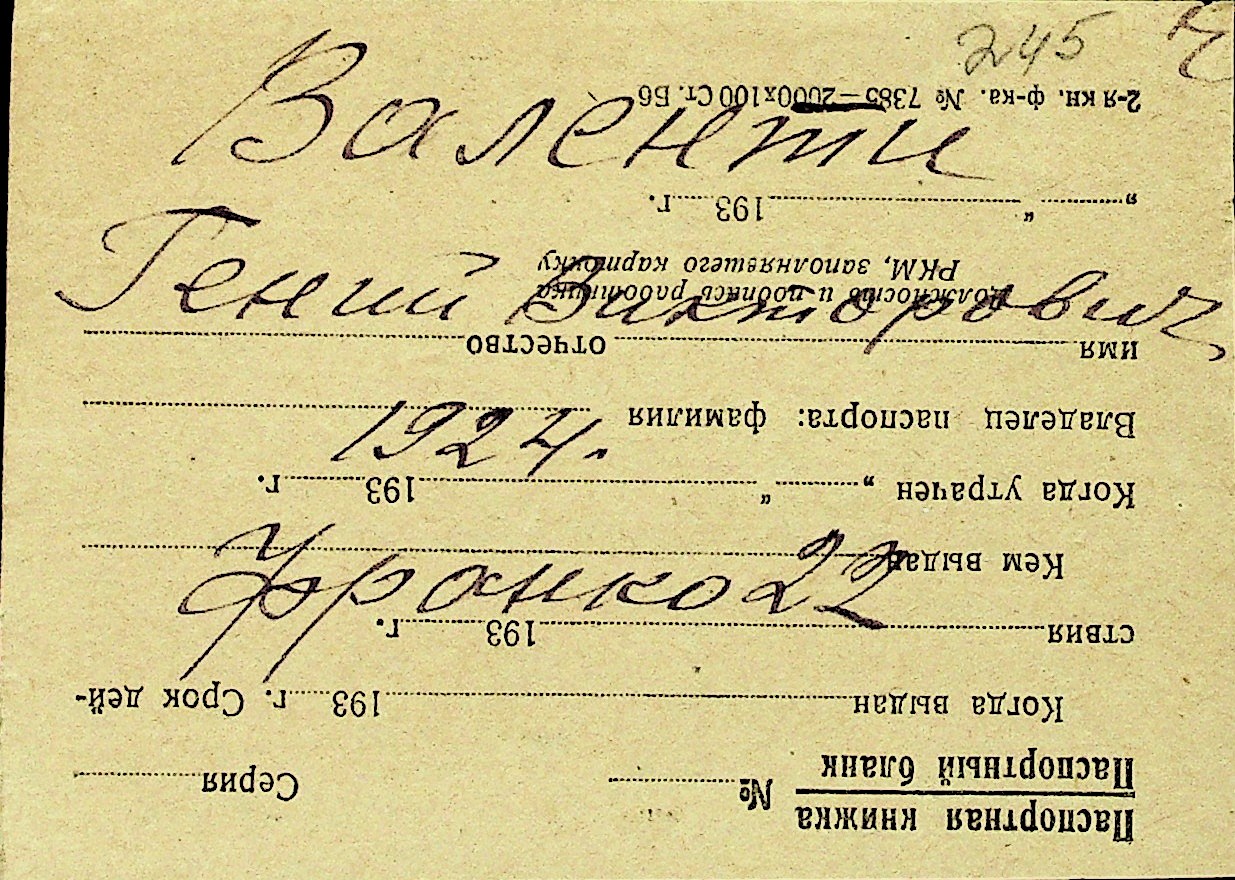 245
Валенти
Гений Викторович
1924.
Франко 22
Паспортная книжка
Паспортный бланк
№ Серия
Когда выдан 193 г. Срок дей-
ствия 193 г.
Кем выдан
Когда утрачен „ “ 193 г.
Владелец паспорта: фамилия
имя отчество
Должность и подпись работника
РКМ, заполнявшего карточку
„ “ 193 г.
2-я кн. ф-ка. № 7385—2000х100 Ст. Б6